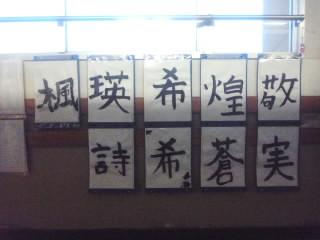 楓瑛希煌敬
詩希蒼実